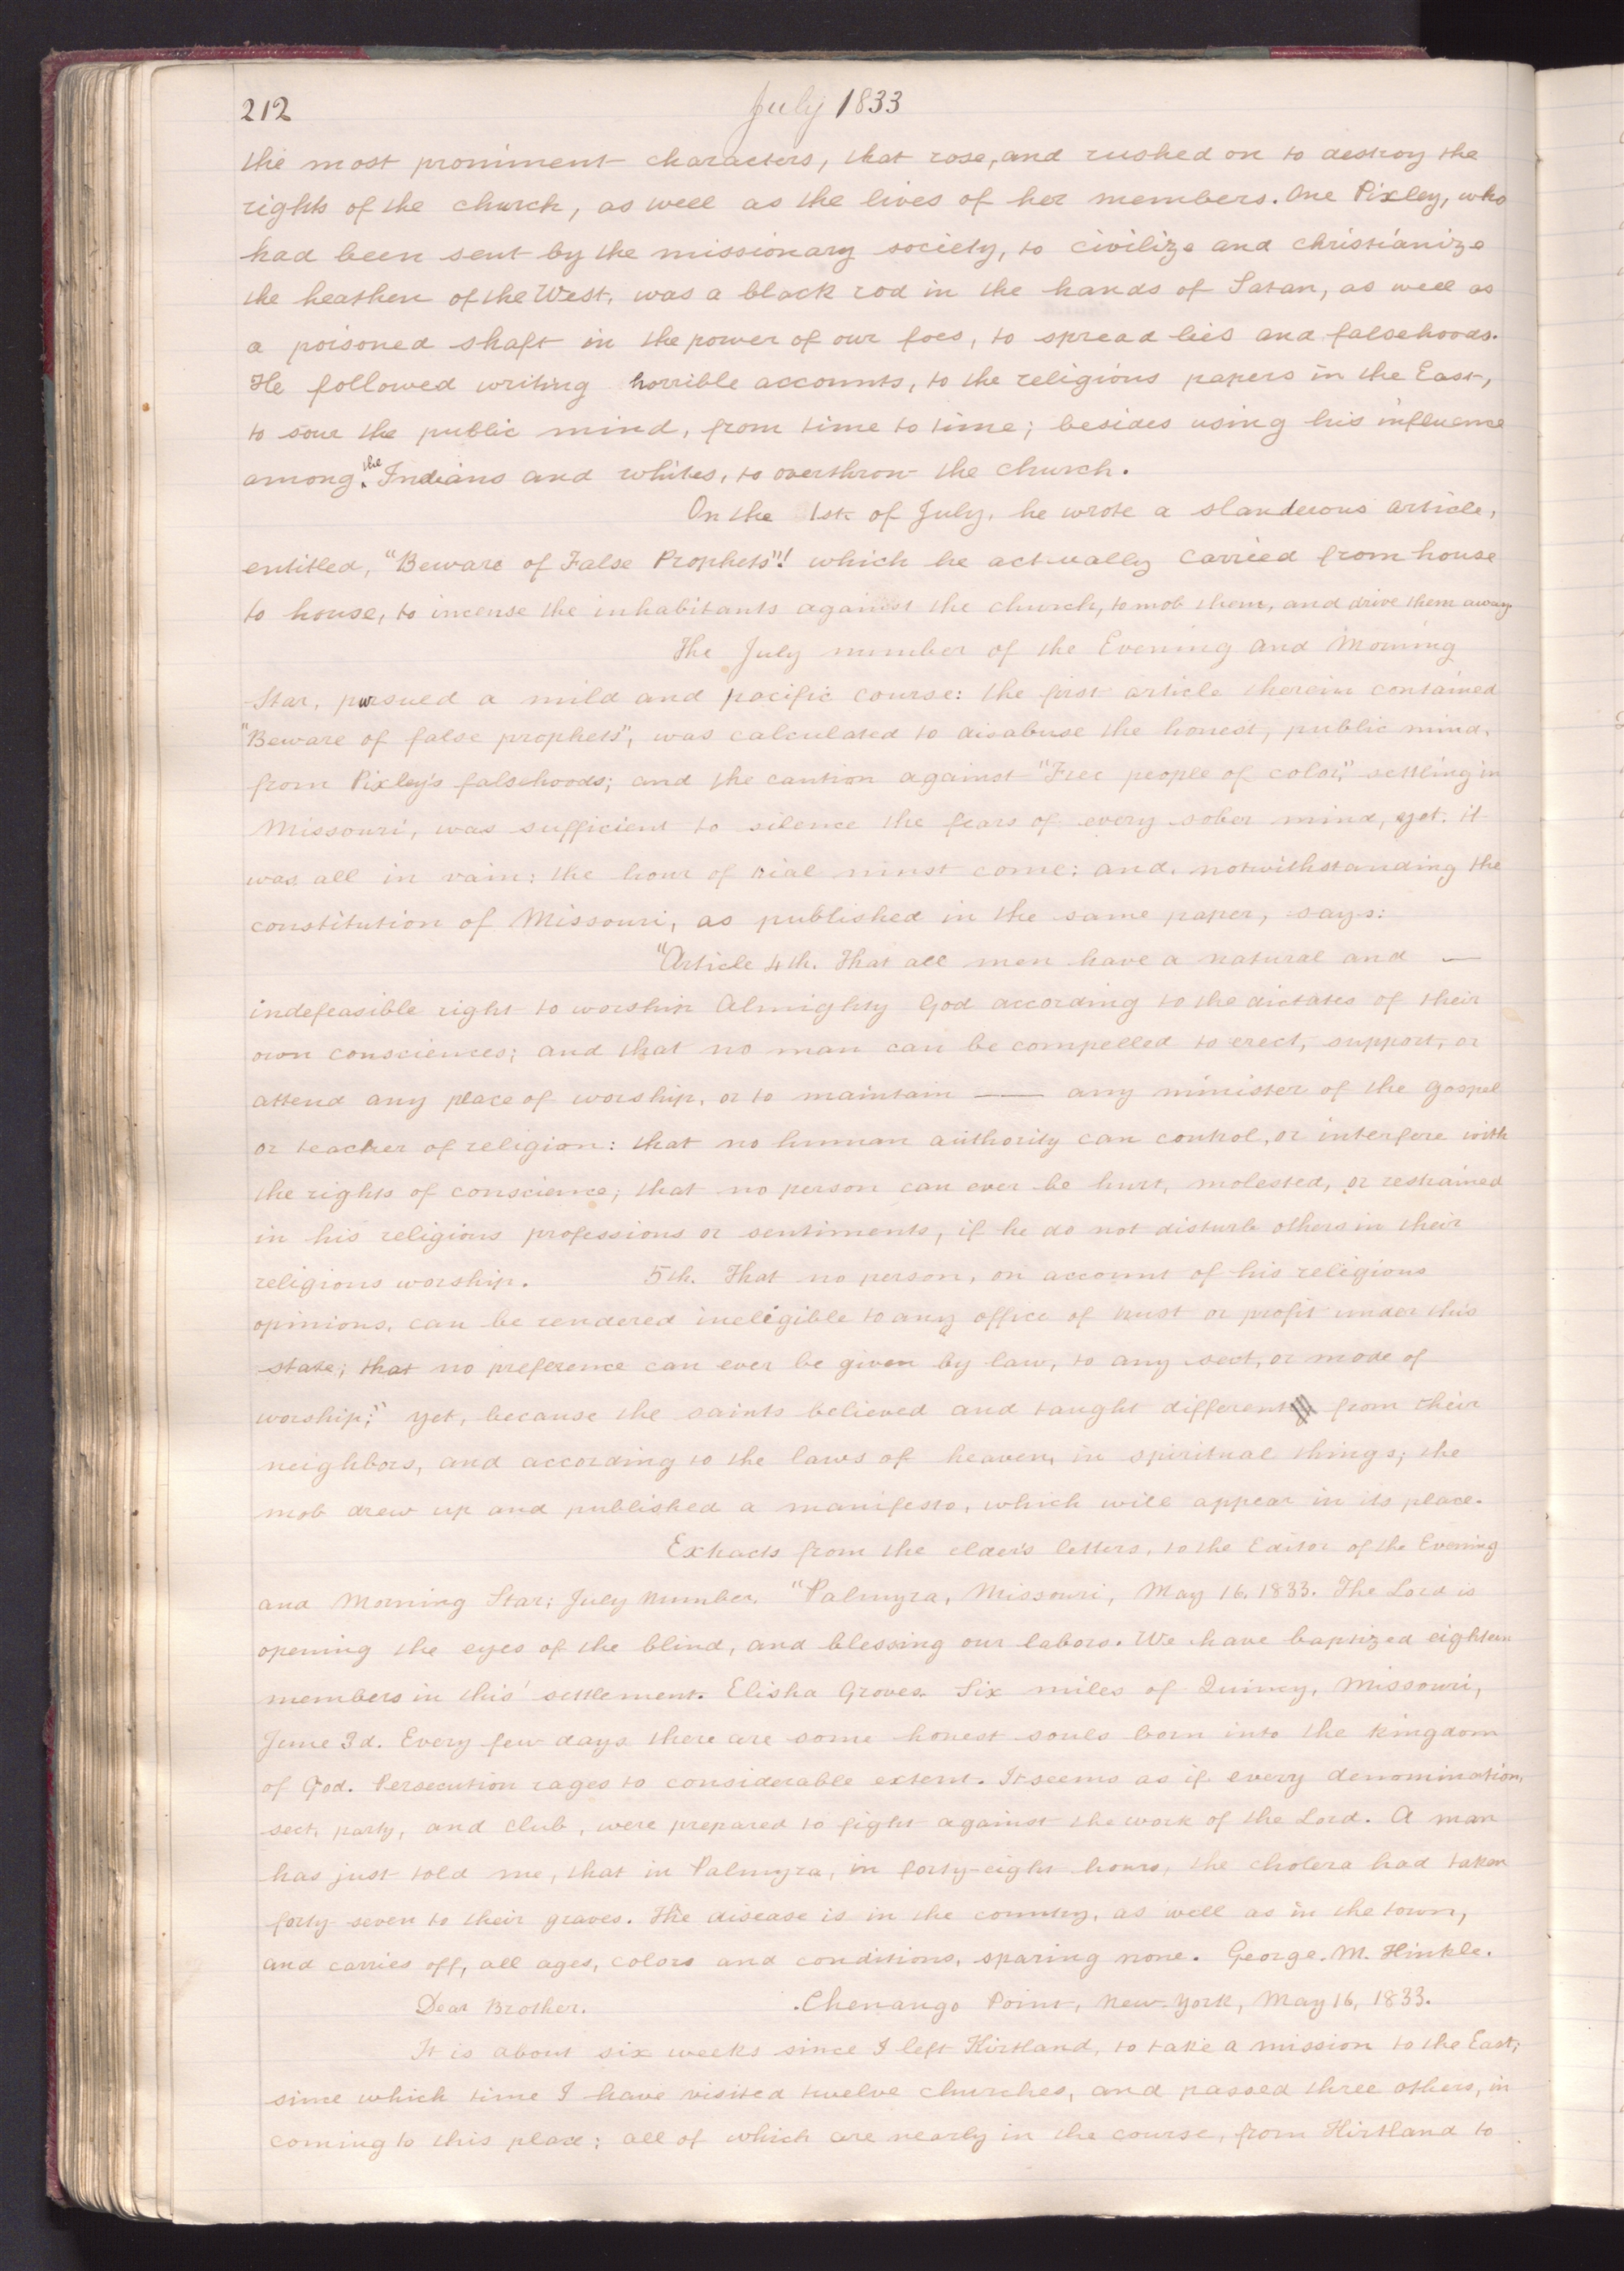 212
July 1833
the most prominent characters, that rose, and rushed on to destroy the
rights of the church, as well as the lives of her members. One Pixley, who
had been sent by the missionary society, to civilize and christianize
the heathen of the West, was a black rod in the hands of Satan, as well as
a poisoned shaft in the power of our foes, to spread lies and falsehoods.
He followed writing horrible accounts, to the religious papers in the East,
to sour the public mind, from time to time; besides using his influence
among the Indians and whites, to overthrow the church.
On the 1st of July, he wrote a slanderous article,
entitled, "Beware of False Prophets"! which he actually carried from house
to house, to incense the inhabitants against the church, to mob them, and drive them away.
The July number of the Evening and Morning
Star, pursued a mild and pacific course: the first article therein contained
"Beware of false prophets", was calculated to disabuse the honest, public mind,
from Pixley's falsehoods; and the caution against "Free people of color," settling in
Missouri, was sufficient to silence the fears of every sober mind, yet. it
was all in vain: the hour of trial must come: and, notwithstanding the
constitution of Missouri, as published in the same paper, says:
"Article 4th. That all men have a natural and —
indefeasible right to worship Almighty God according to the dictates of their
own consciences; and that no man can be compelled to erect, support, or
attend any place of worship, or to maintain — any minister of the gospel
or teacher of religion: that no human authority can control, or interfere with
the rights of conscience; that no person can ever be hurt, molested, or restrained
in his religious professions or sentiments, if he do not disturb others in their
religious worship. 5th. That no person, on account of his religious
opinions, can be rendered ineligible to any office of trust or profit under this
state; that no preference can ever be given by law, to any sect, or mode of
worship:" yet, because the saints believed and taught different from their
neighbors, and according to the laws of heaven, in spiritual things; the
mob drew up and published a manifesto, which will appear in its place.
Extracts from the elder's letters, to the Editor of the Evening
and Morning Star; July number. "Palmyra, Missouri, May 16, 1833. The Lord is
opening the eyes of the blind, and blessing our labors. We have baptized eighteen
members in this settlement. Elisha Groves. Six miles of Quincy, Missouri,
June 3d. Every few days there are some honest souls born into the kingdom
of God. Persecution rages to considerable extent. It seems as if every denomination,
sect, party, and club, were prepared to fight against the work of the Lord. A man
has just told me, that in Palmyra, in forty-eight hours, the cholera had taken
forty seven to their graves. The disease is in the country, as well as in the town,
and carries off, all ages, colors and conditions, sparing none. George. M. Hinkle.
Dear Brother. Chenango Point, New York, May 16, 1833.
It is about six weeks since I left Kirtland, to take a mission to the East;
since which time I have visited twelve churches, and passed three others, in
coming to this place; all of which are nearly in the course, from Kirtland to